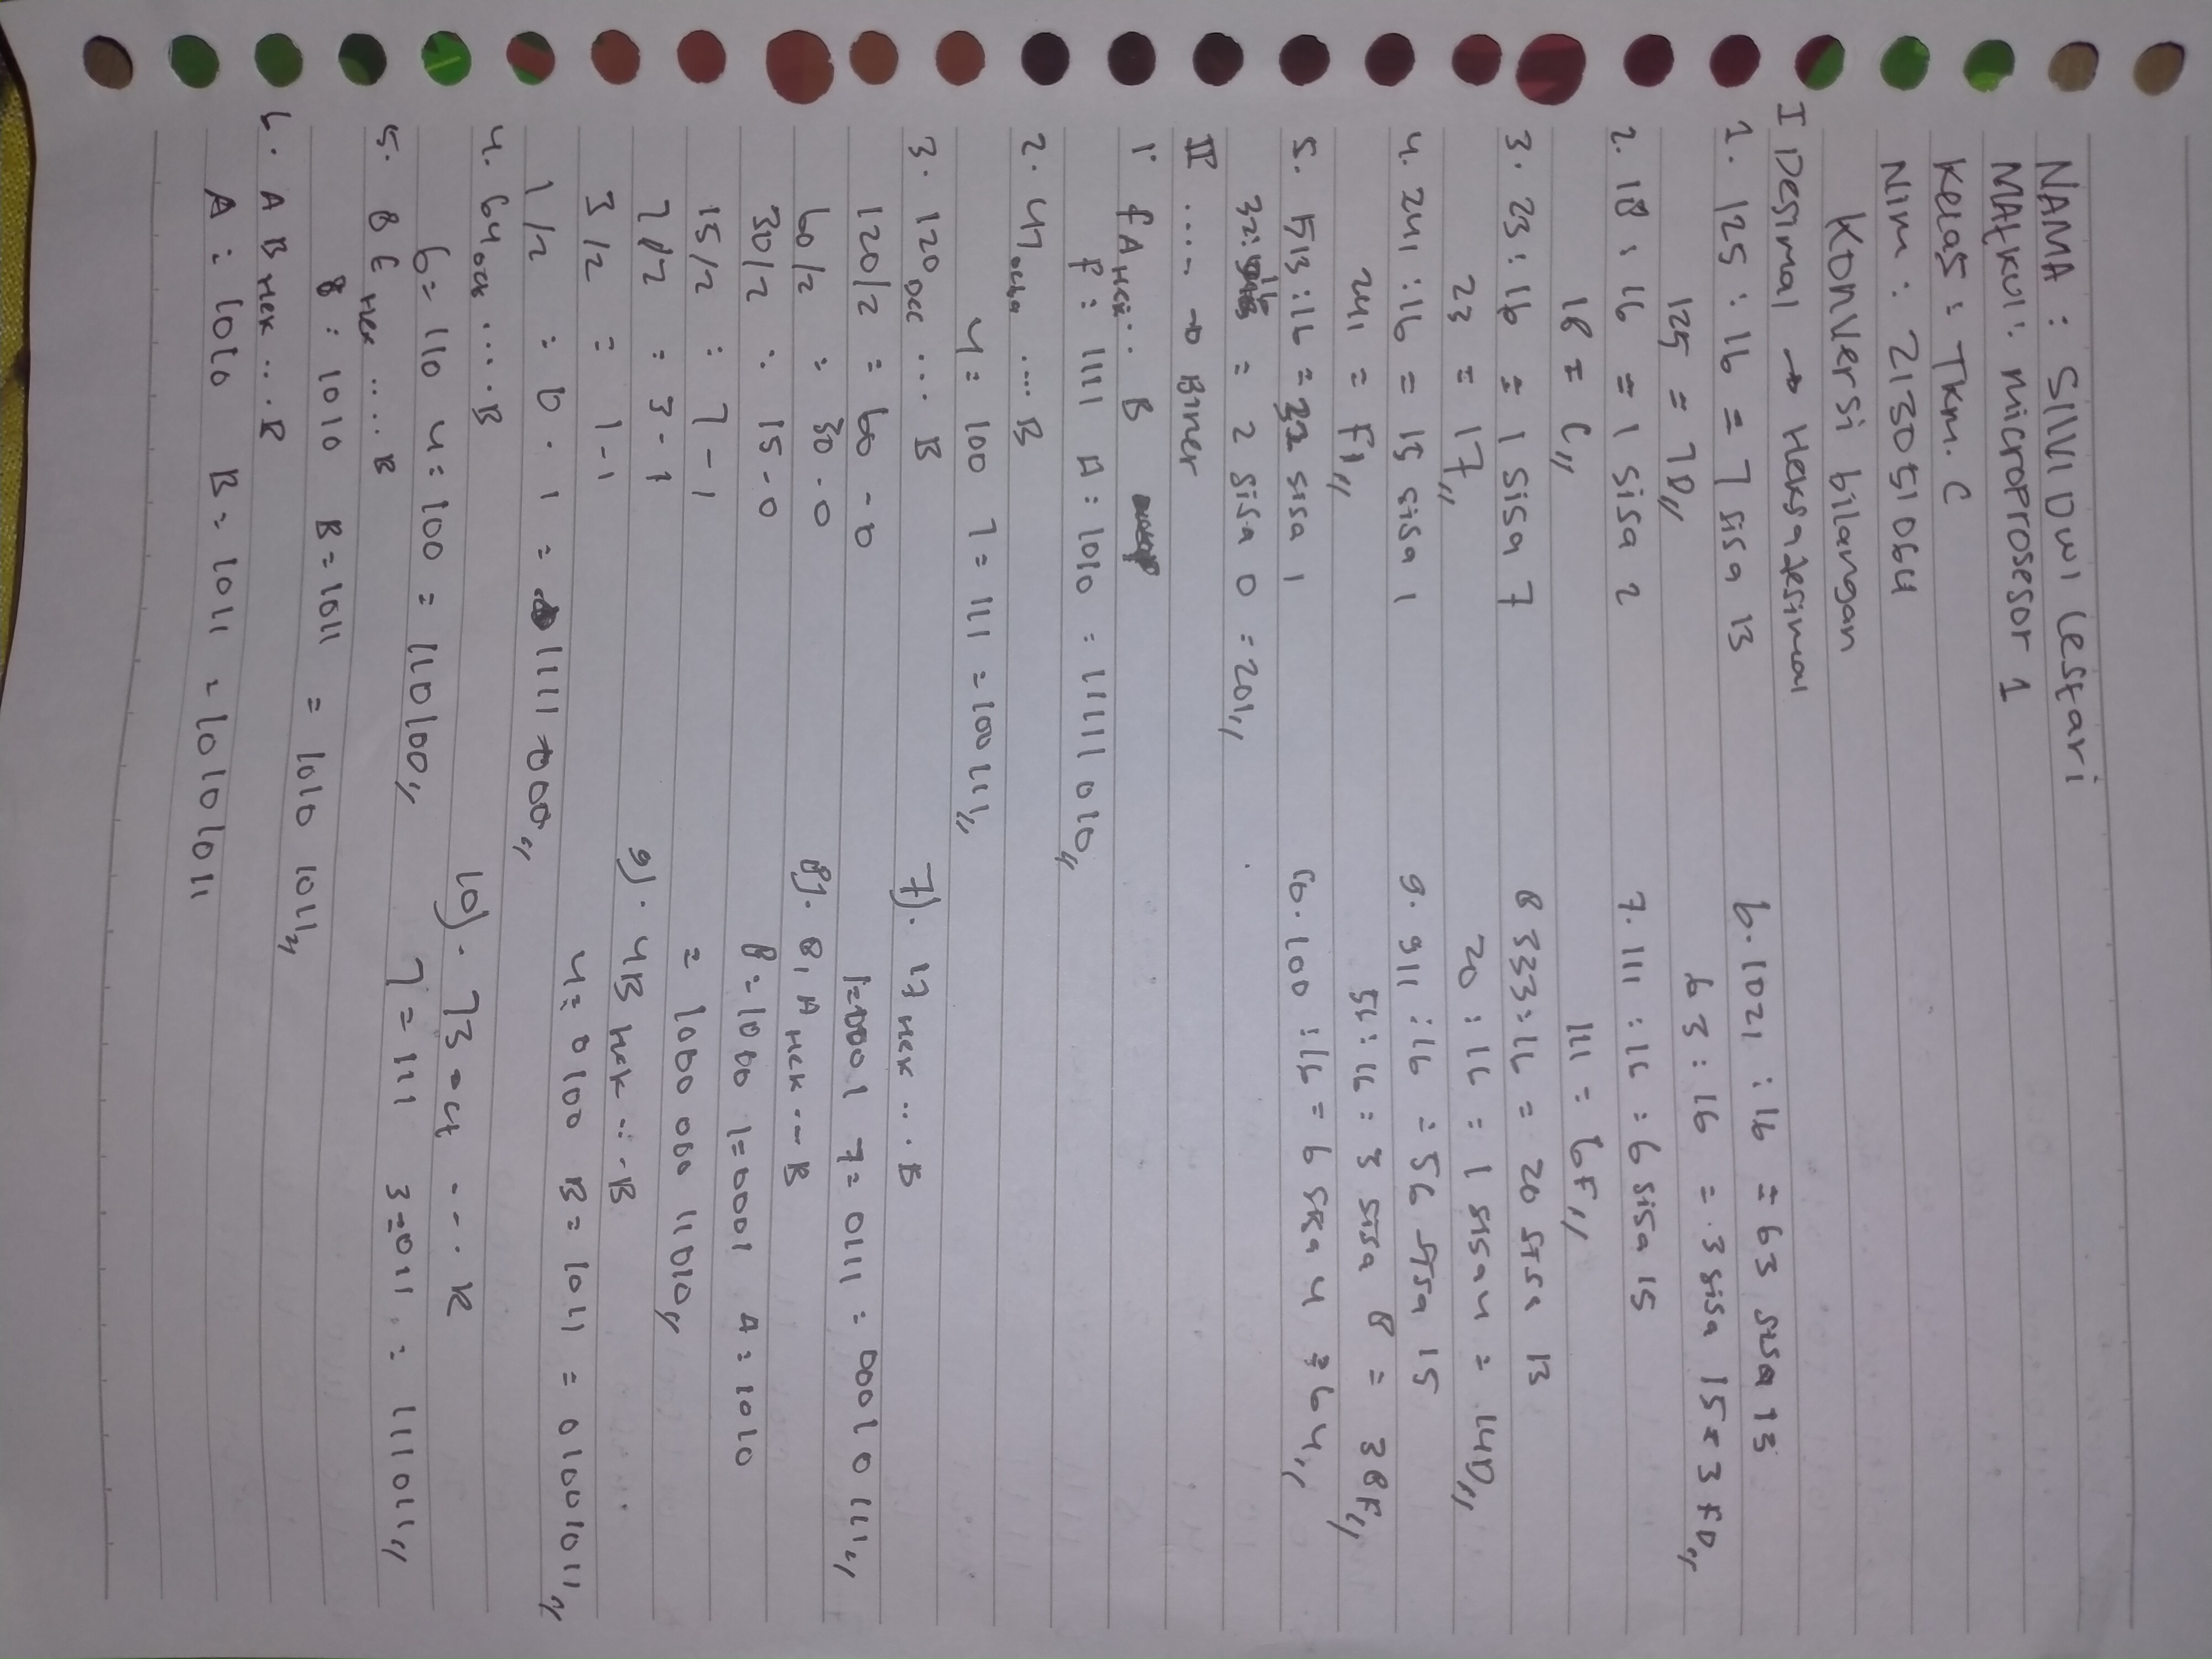 NAMA : SILVI DWI Lestari
MATkul : microprosesor 1
Kelas : Tkm. C
Nim : 213051064
KONVersi bilangan
I Desimal → Heksadesimal
1. 125 : 16 = 7 sisa 13
125 = 7D,,
2. 18 : 16 = 1 sisa 2
18 =
3. 23 : 16 = 1 sisa 7
23 = 17,,
4. 241 : 16 = 15 sisa 1
241 = F1,,
5. 513 : 16 = 32 sisa 1
32 : 16 = 2 sisa 0 = 201,,
6. 100 : 16 = 6 sisa 4 = 64,,
57 : 16 = 3 sisa 8 = 38F,,
9. 911 : 16 = 56 sisa 15
20 : 16 = 1 sisa 4 = 14D,,
8 333 : 16 = 20 sisa 13
111 = 6F,,
7. 111 : 16 = 6 sisa 15
63 : 16 = 3 sisa 15 = 3FD,,
6. 1021 : 16 = 63 sisa 13
II .... → Biner
1. FA Hex ... B
F : 1111 A : 1010 = 11111010,,
2. 47 octa .... B
4 = 100 7 = 111 = 100111,,
3. 120 Dec .... B
120/2 = 60 - 0
60/2 = 30 - 0
30/2 = 15 - 0
15/2 = 7 - 1
7/2 = 3 - 1
3/2 = 1 - 1
1/2 = 0 - 1 = 1111000,,
4. 64 octa .... B
6 = 110 4 = 100 = 110100,,
5. 8 E Hex .... B
8 : 1010 B = 1101 = 1010 1011,,
4. A B Hex ... B
A : 1010 B = 1101 = 10101011
7). 17 Hex ... B
1 = 1000 7 = 1110 = 00010111,,
8). 8 1 A Hex ... B
8 = 1000 1 = 0001 A = 1010
= 1000 0001 1010,,
9). 4B Hex ... B
4 = 0100 B = 1011 = 01001011,,
10). 73 octa ... B
7 = 111 3 = 011 = 111011,,